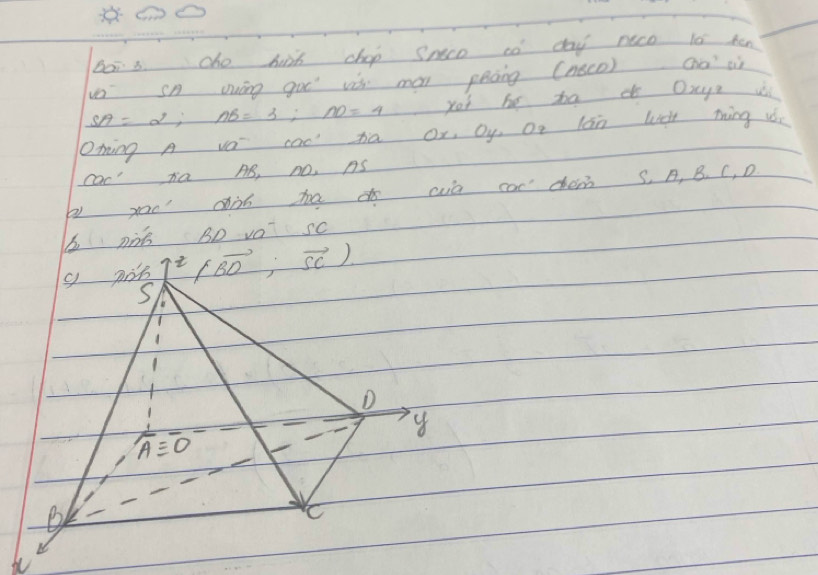 Bài 3. Cho hình chóp SABCD có đáy ABCD là hcn
và SA vuông góc với mặt phẳng (ABCD) Giả sử
SA = 2; AB = 3; AD = 4 xét hệ tọa độ Oxyz với
O trùng A và các tia Ox, Oy, Oz lần lượt trùng với
các tia AB, AD, AS
a) xác định tọa độ của các điểm S, A, B, C, D
b) Tính BD và SC
c) Tính (BD ; SC)
z
S
D
y
A≡O
B
C
x